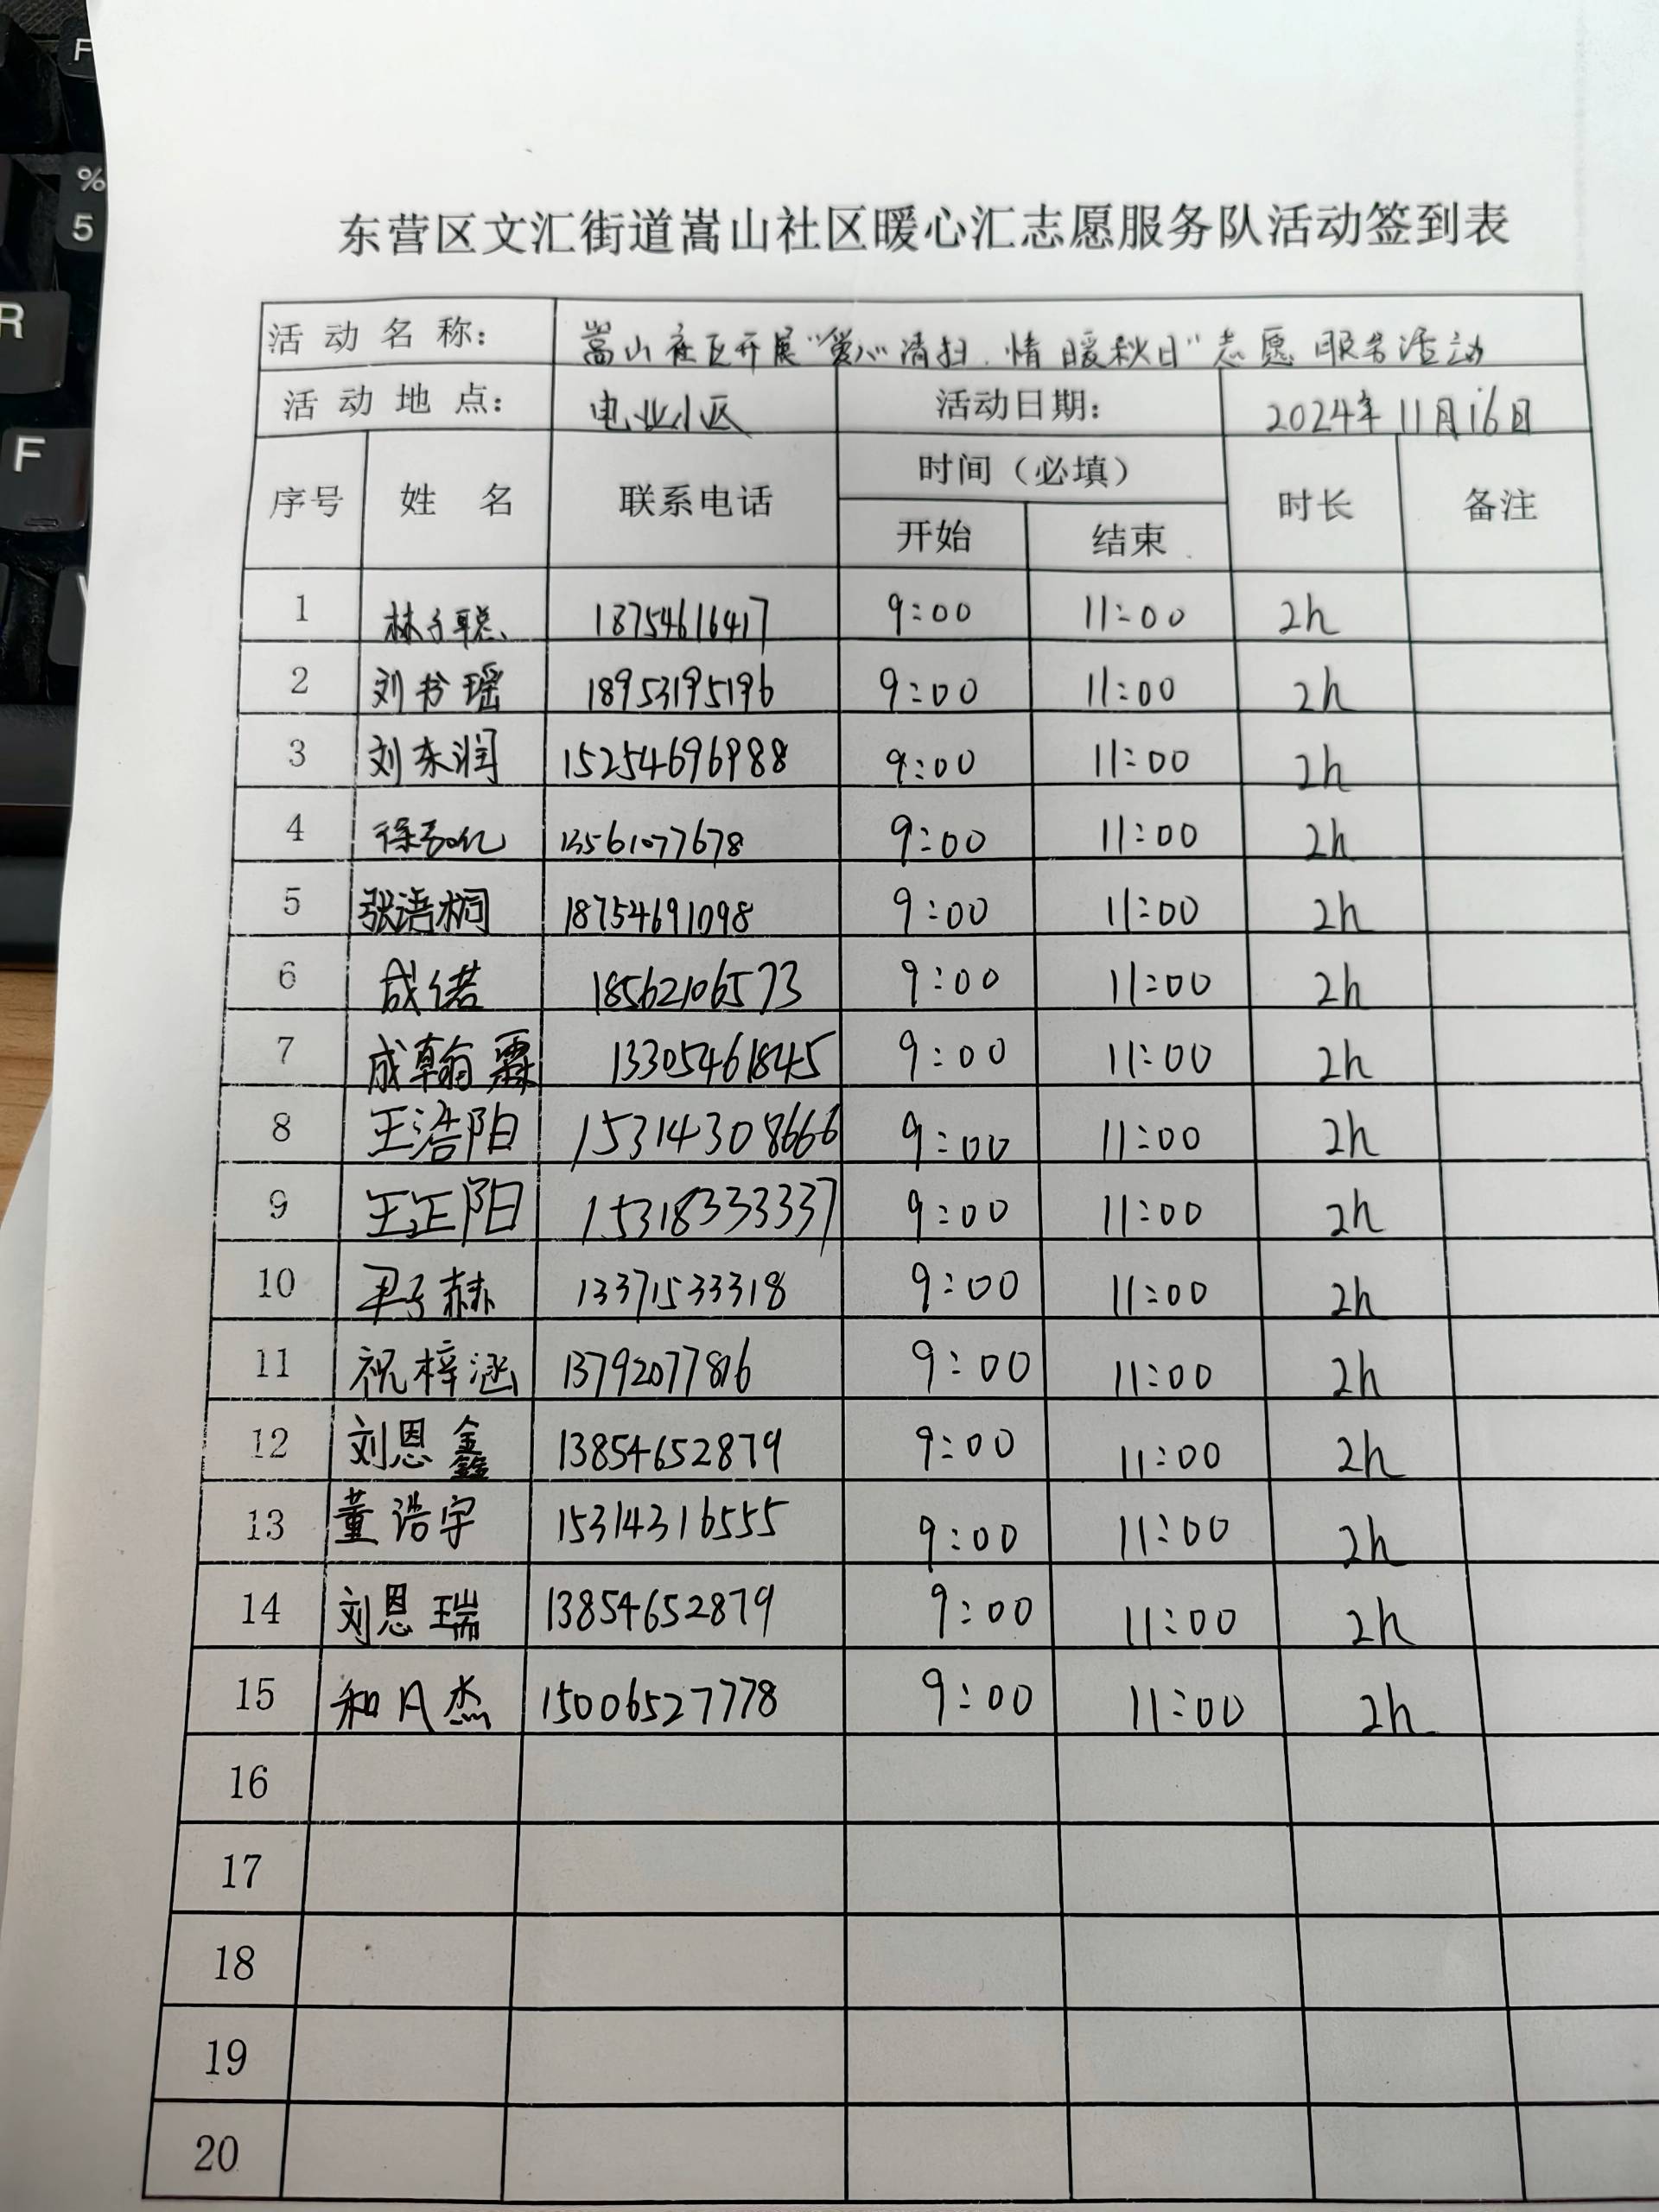 F
%
5
R
F
东营区文汇街道嵩山社区暖心汇志愿服务队活动签到表
活动名称: 嵩山社区开展“爱心清扫.情暖秋日”志愿服务活动
活动地点: 电业小区 活动日期: 2024年11月16日
序号 姓名 联系电话 时间（必填） 时长 备注
开始 结束
1 林子聪 18754616417 9:00 11:00 2h
2 刘书瑶 18953195196 9:00 11:00 2h
3 刘东润 15254696988 9:00 11:00 2h
4 13561077678 9:00 11:00 2h
5 张语桐 18754691098 9:00 11:00 2h
6 成偌 18562106573 9:00 11:00 2h
7 成翰霖 13305461845 9:00 11:00 2h
8 王浩阳 15314308666 9:00 11:00 2h
9 王正阳 15318333337 9:00 11:00 2h
10 尹子赫 13371533318 9:00 11:00 2h
11 祝梓涵 13792077816 9:00 11:00 2h
12 刘恩鑫 13854652879 9:00 11:00 2h
13 董浩宇 15314316555 9:00 11:00 2h
14 刘恩瑞 13854652879 9:00 11:00 2h
15 和凡杰 15006527778 9:00 11:00 2h
16
17
18
19
20